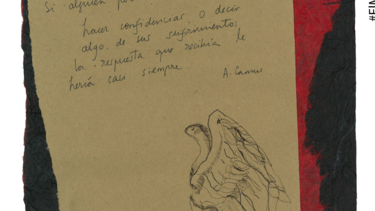 Si alguien
hacer confidencias o decir
algo de sus sufrimientos;
la respuesta que recibía le
hería casi siempre
A. Camus